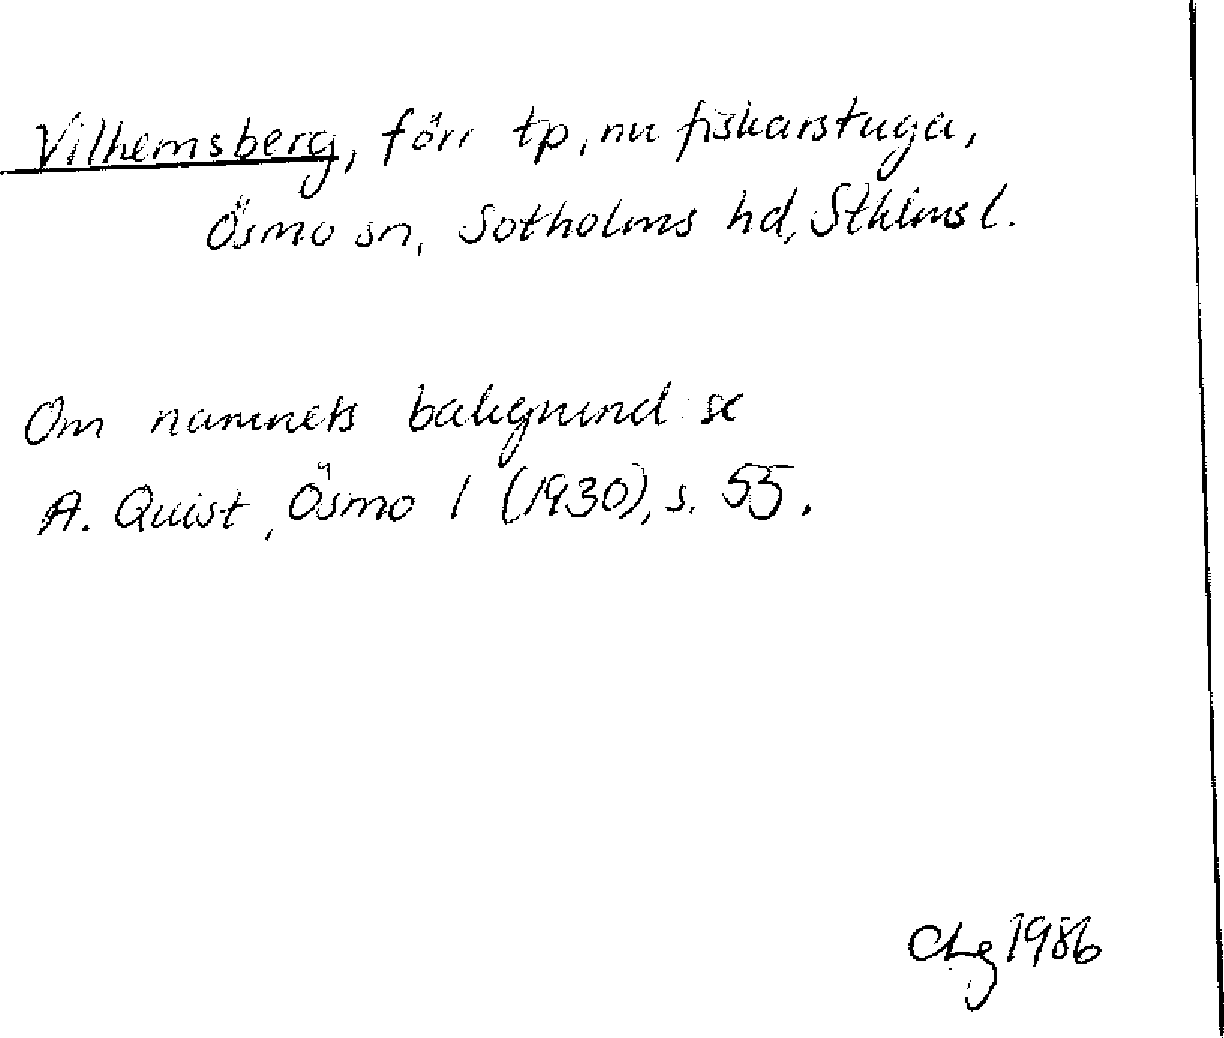 Vilhemsberg, förr tp, nu fiskarstuga,
Ösmo sn, Sotholms hd, Sthlms l.
Om namnets bakgrund se
A. Quist, Ösmo 1 (1930), s. 55.
CLg 1986